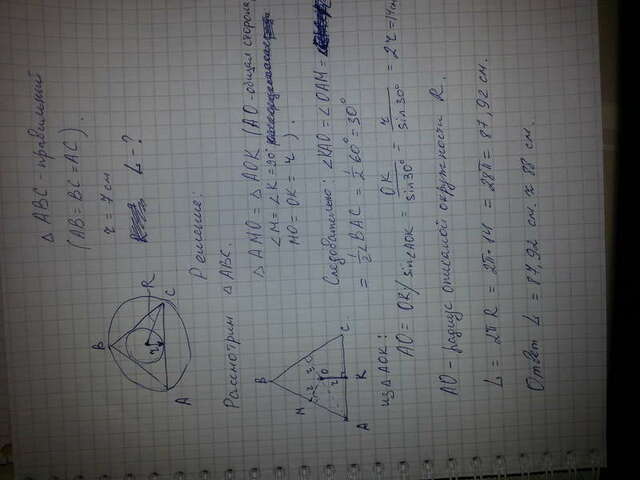 △ ABC - правильный
(AB = BC = AC).
r = 7 см
L - ?
B
R
r
A
C
Решение:
Рассмотрим △ABC.
△ AMO = △ AOK (AO - общая сторона,
∠M = ∠K = 90°
MO = OK = r ).
Следовательно: ∠KAO = ∠OAM =
= ½∠BAC = ½ 60° = 30°
B
M
r
r
O
r
A
K
C
из △AOK:
AO = OK/sin∠AOK = OK/sin30° = r/sin30° = 2r = 14 см
AO - радиус описаной окружности R.
L = 2πR = 2π·14 = 28π = 87,92 см.
Ответ L = 87,92 см. ≈ 88 см.